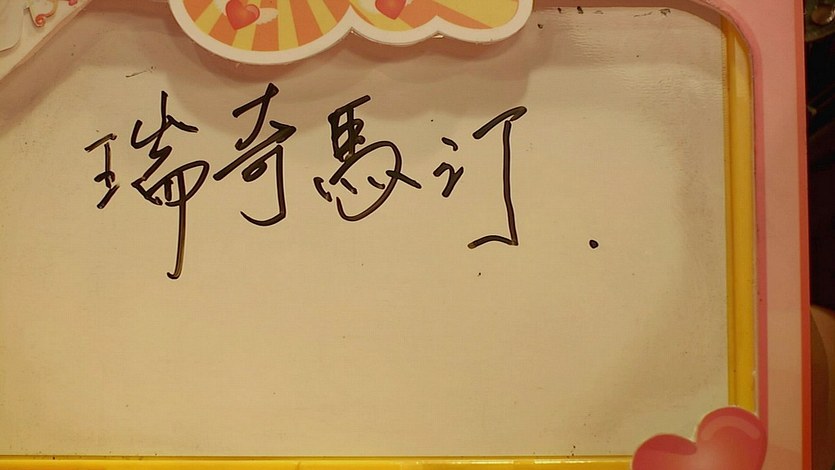 瑞奇馬汀.